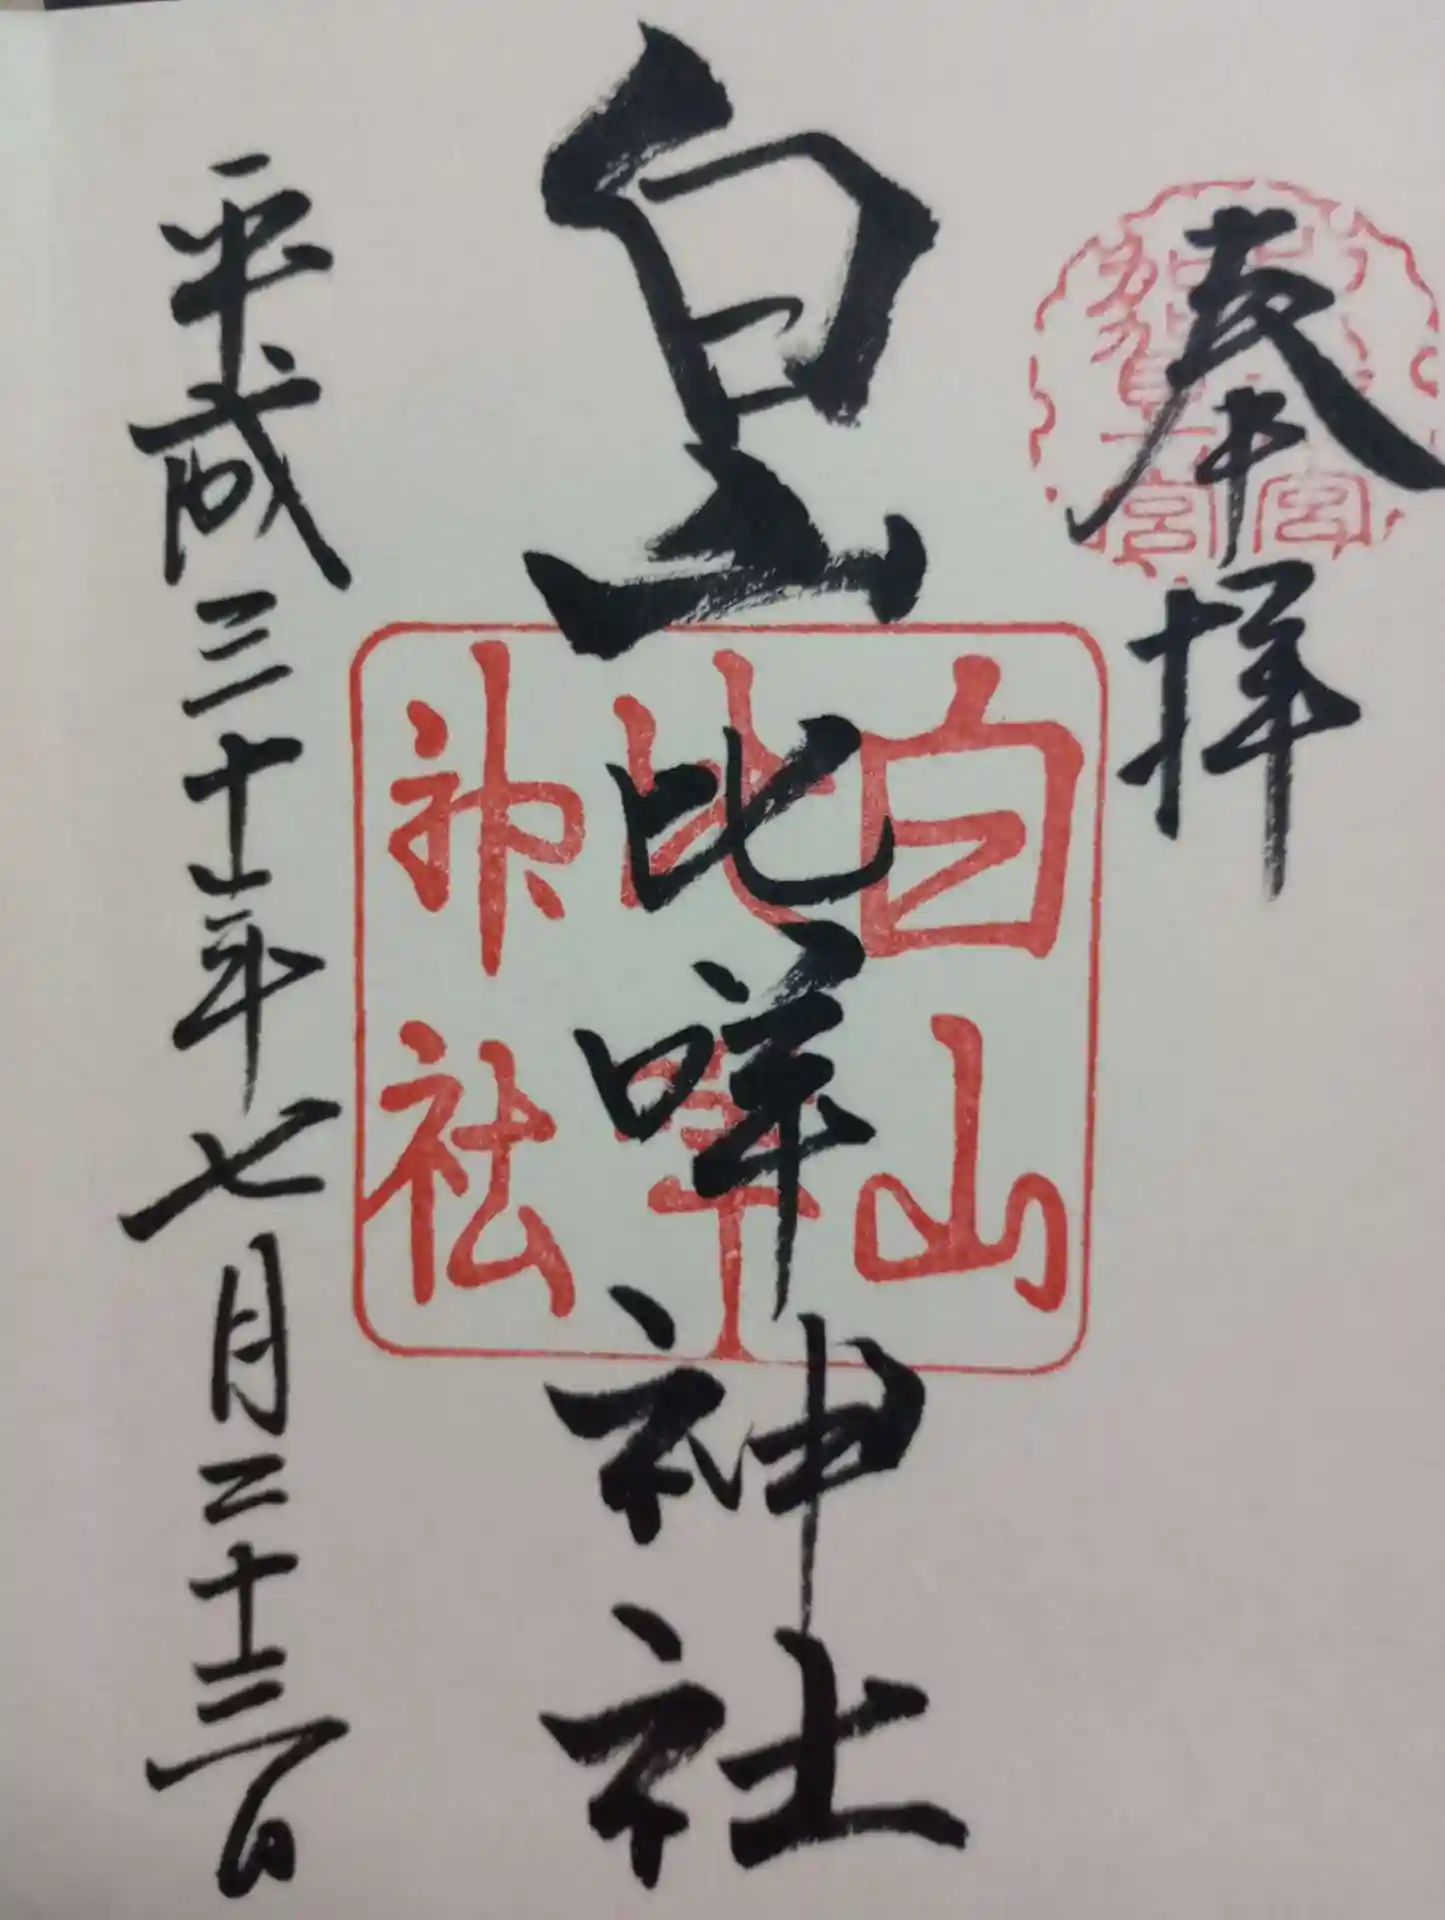 奉拝
加賀一宮
白山比咩神社
白山
比咩
神社
平成三十年七月二十三日